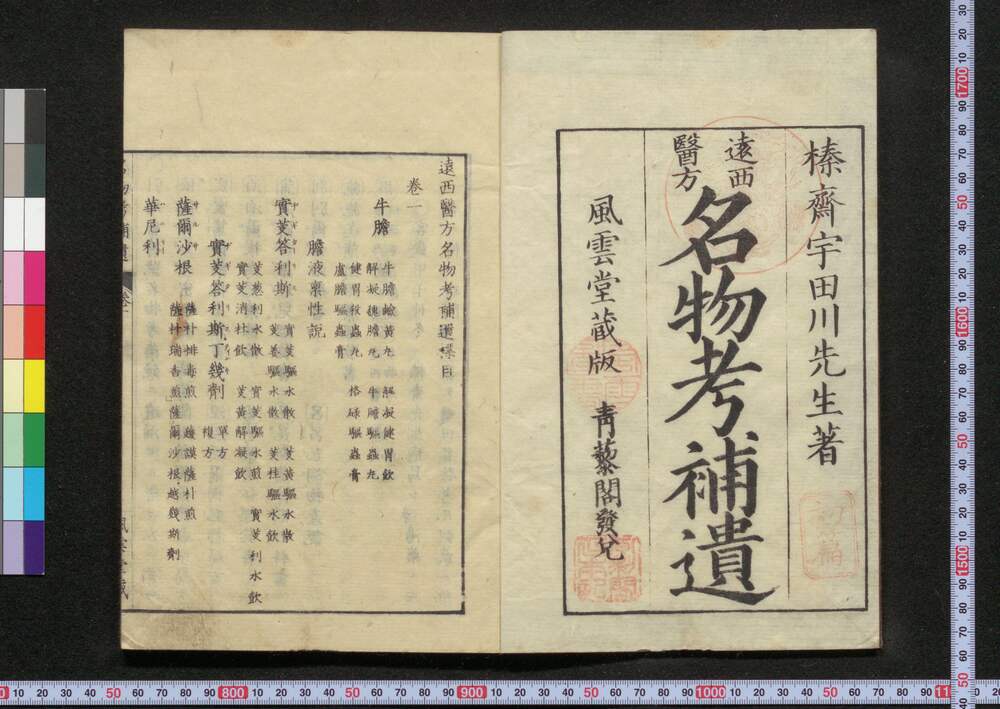 榛齋宇田川先生著
遠西
醫方
名物考補遺
風雲堂蔵版
靑藜閣發兌
遠西醫方名物考補遺畧目
卷一
牛膽
牛膽鹼黃丸 解凝健胃飲
解凝 丸 牛膽驅蟲丸
健胃殺蟲丸 格碌驅蟲膏
盧膽驅蟲膏
膽液稟性説
實芰答利斯
實芰驅水散 芰黃驅水散
芰葱利水散 實芰驅水煎 實芰利水飲
芰養驅水散 芰桂驅水飲
實芰消杜飲 芰黃解凝飲
實芰荅利斯丁幾劑
單方
複方
薩爾沙根
薩朴排毒煎 護謨薩朴煎
薩朴瑞香煎 薩爾沙根越幾斯劑
華尼利